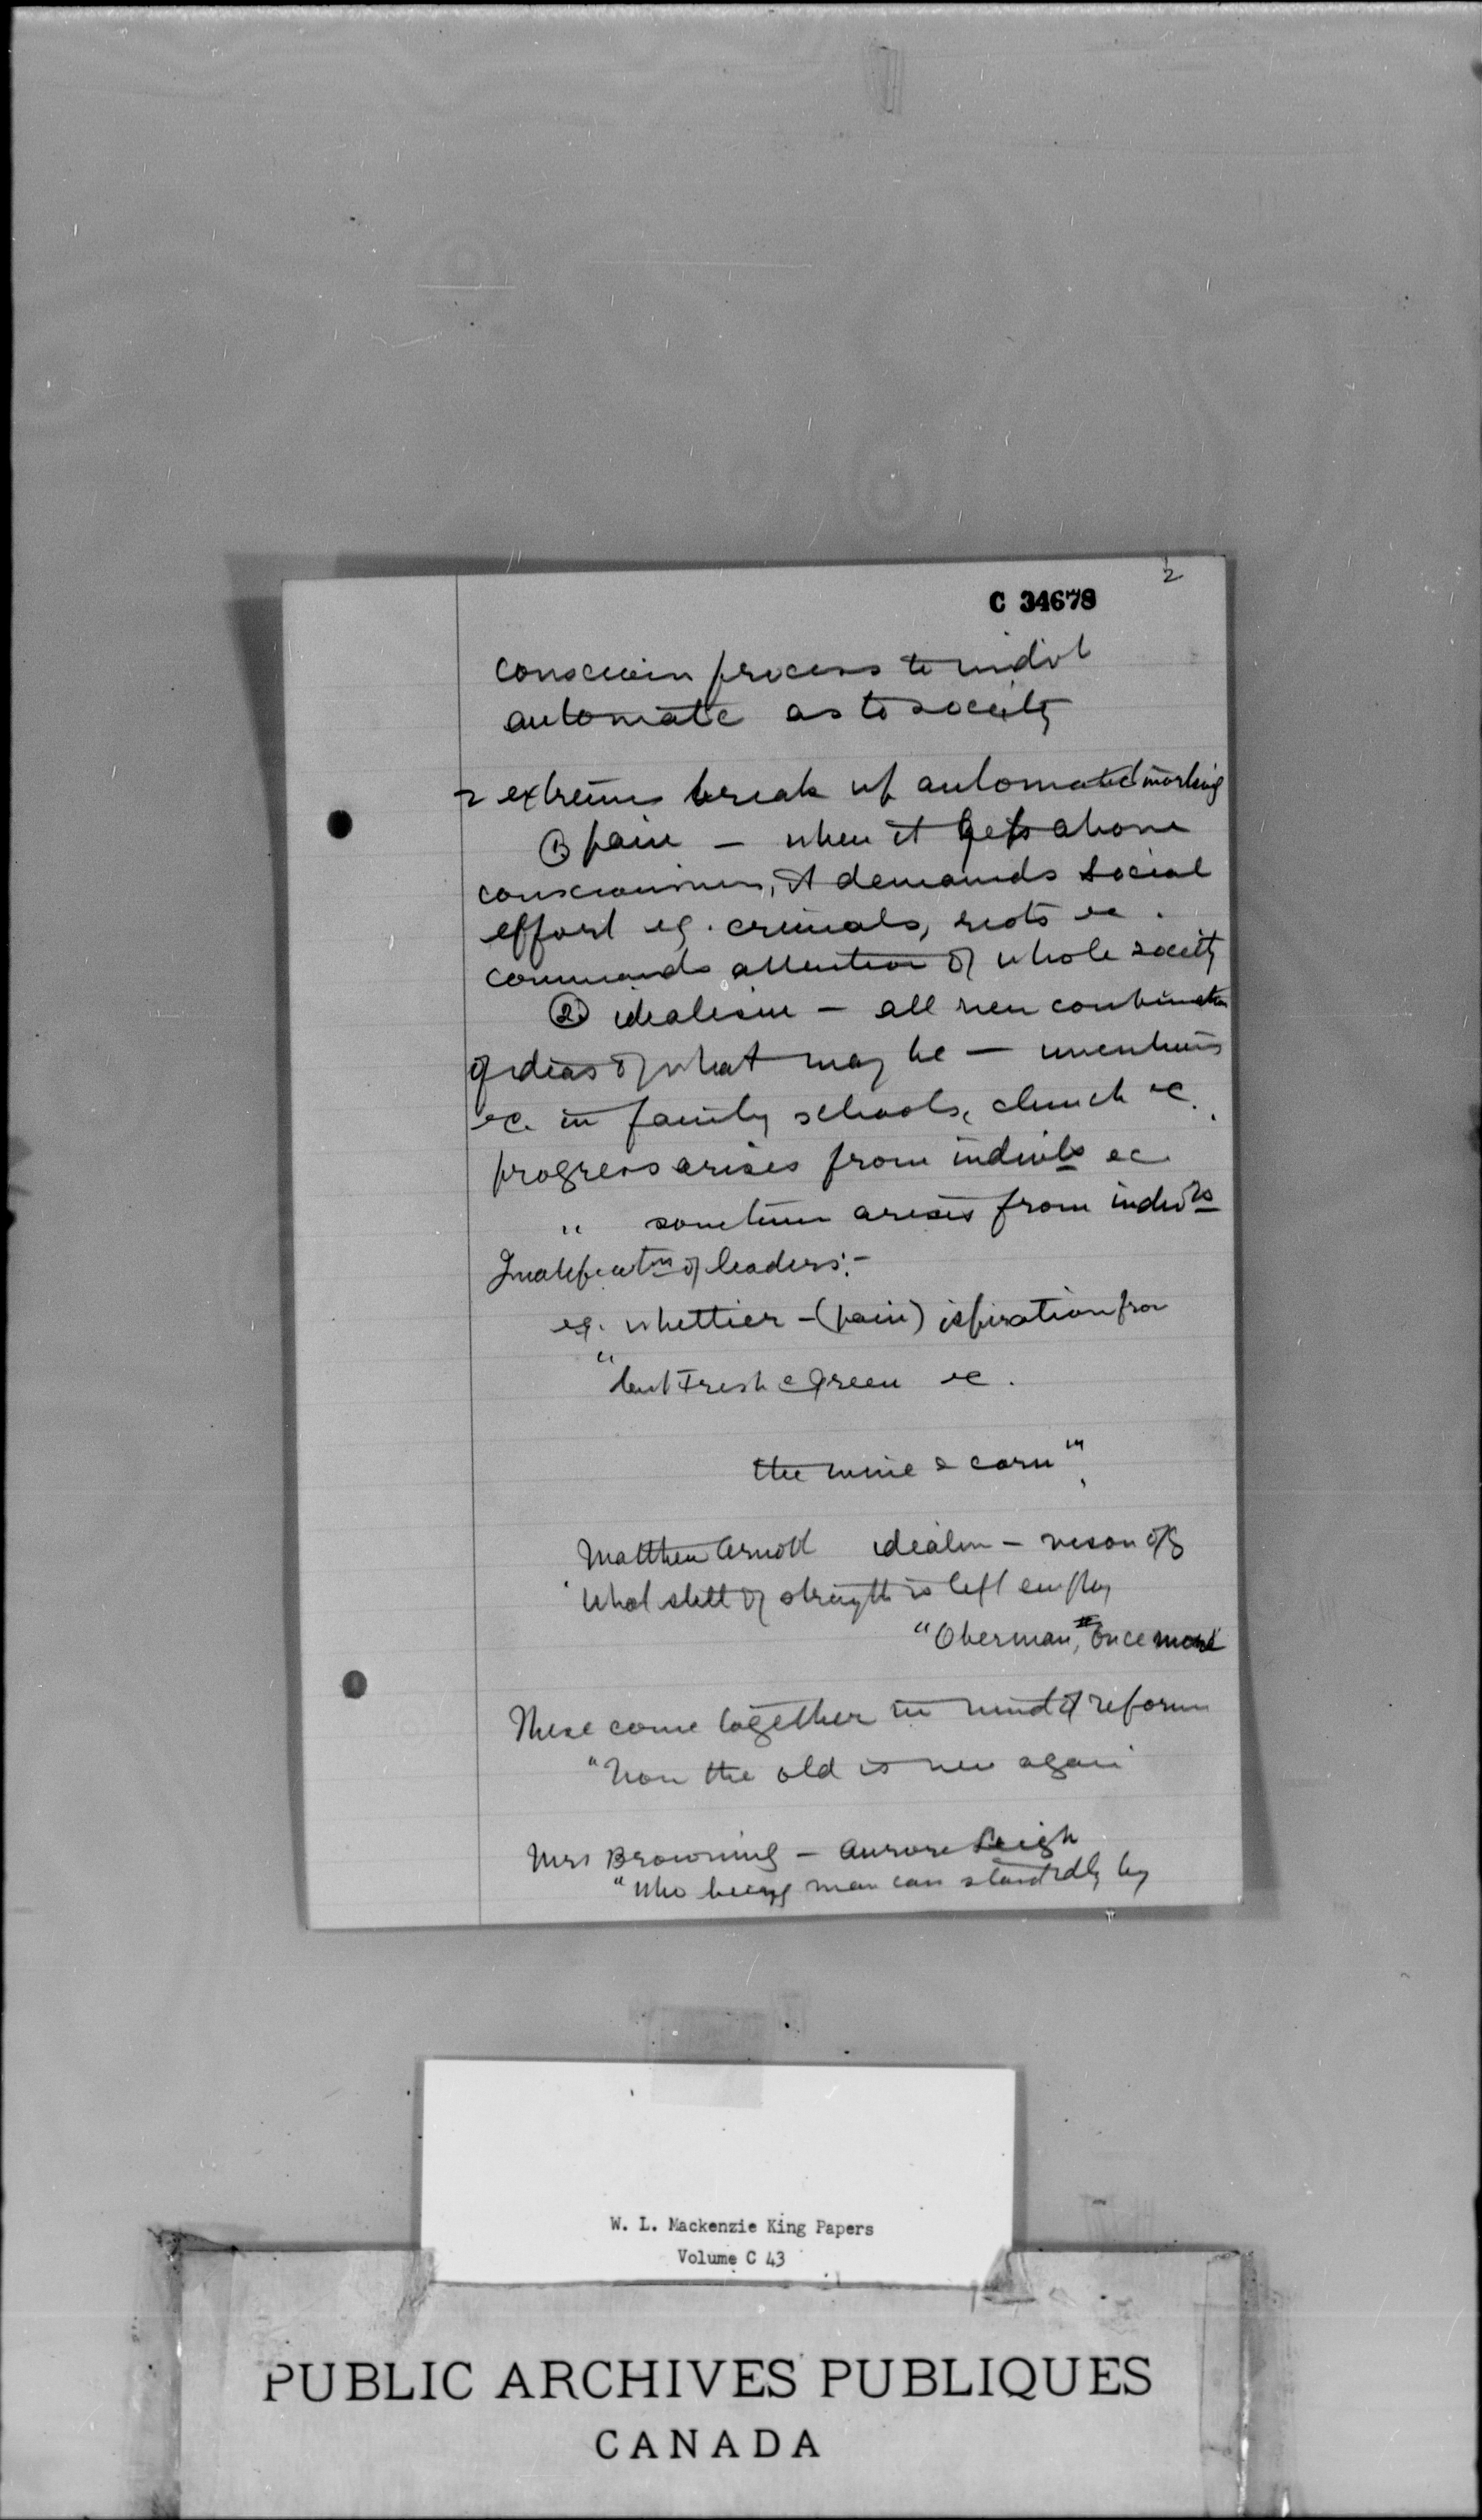 2
C 34678
conscious process to indivl
automatic as to society
2 extremes break up automatic working
① pain - when it gets above
consciousness, it demands social
effort eg. criminals, riots &c.
commands attention of whole society
② idealism - all new combination
of ideas of what may be - inventions
&c. in family schools, church &c.
progress arises from indivls &c
" sometimes arises from indivls
Qualificatns of leaders:-
eg. Whittier - (pain) ispiration from
"but fresh & green &c.
the wine & corn"
Matthew Arnold idealm - vison of
"What shett of strength is left employ
"Oberman, once more
These come together in mind of reformer
"Now the old is new again
Mrs Browning - Aurora Leigh
"Who being man can stand by
W. L. Mackenzie King Papers
Volume C 43
PUBLIC ARCHIVES PUBLIQUES
CANADA